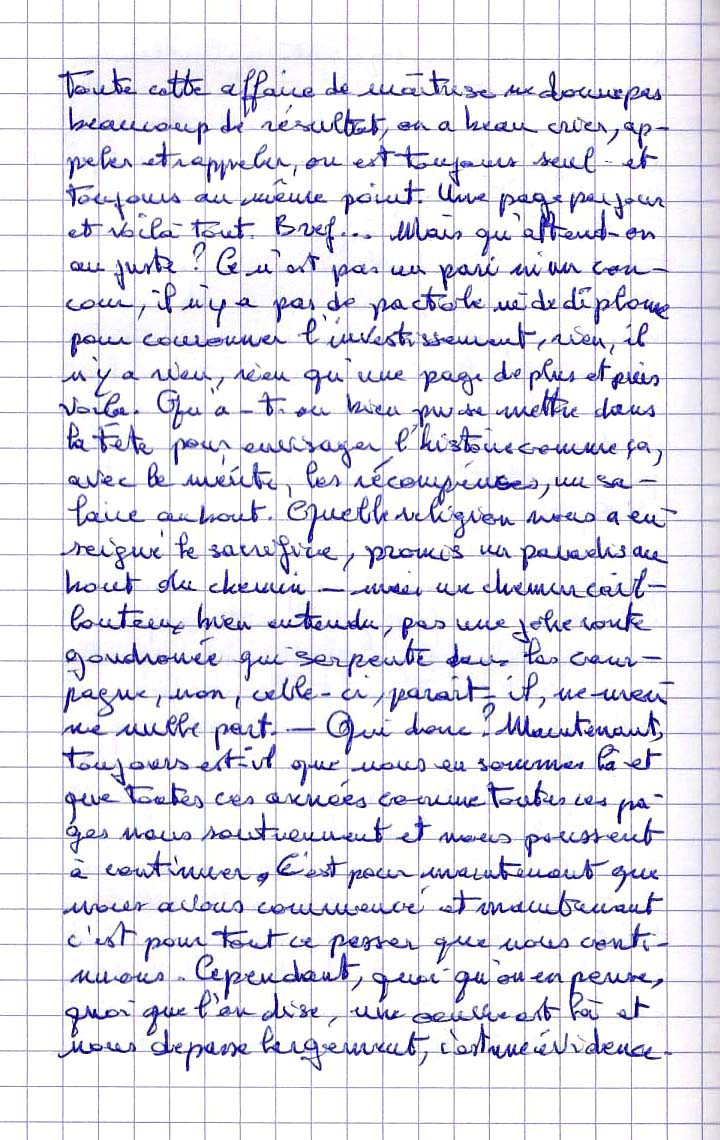 Toute cette affaire de maîtrise ne donne pas
beaucoup de résultat, on a beau crier, ap-
peler et rappeler, on est toujours seul et
toujours au même point. Une page par jour
et voilà tout. Bref... Mais qu'attend-on
au juste ? Ce n'est pas un pari ni un con-
cour, il n'y a pas de pactole ni de diplome
pour couronner l'investissement, rien, il
n'y a rien, rien qu'une page de plus et puis
voilà. Qu'a-t-on bien pu se mettre dans
la tête pour envisager l'histoire comme ça,
avec le mérite, les récompenses, un sa-
laire au bout. Quelle religion nous a en-
seigné le sacrifice, promis un paradis au
bout du chemin – mais un chemin cail-
louteux bien entendu, pas une jolie route
goudronée qui serpente dans la cam-
pagne, non, celle-ci, parait-il, ne mèn
ne nulle part. – Qui donc ? Maintenant,
toujours est-il que nous en sommes là et
que toutes ces années comme toutes ces pa-
ges nous soutiennent et nous poussent
à continuer. C'est pour maintenant que
nous avons commencé et maintenant
c'est pour tout ce passer que nous conti-
nuons. Cependant, quoi qu'on en pense,
quoi que l'on dise, une oeuvre est là et
nous depasse largement, c'est une évidence.